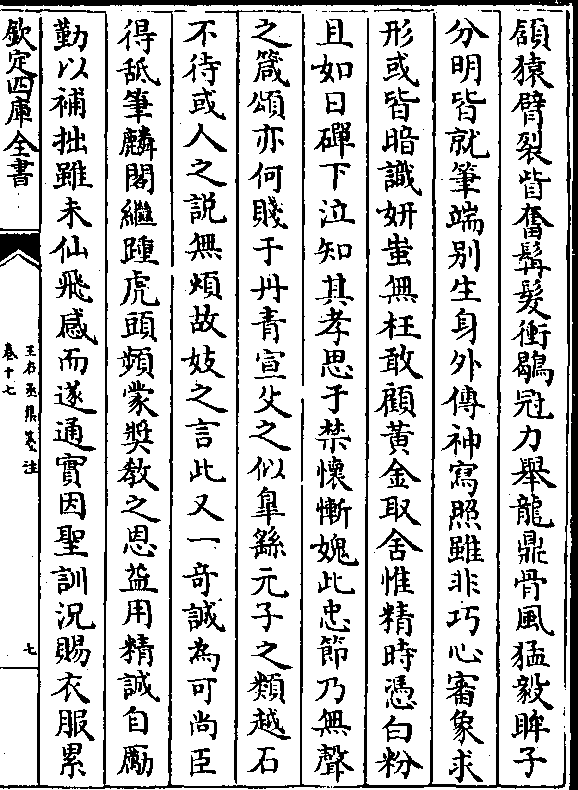 頷猿臂裂眥奮髯髪衝鶡冠力舉龍鼎骨風猛毅眸子
分明皆就筆端別生身外傳神寫照雖非巧心審象求
形或皆暗識妍蚩無枉敢顧黃金取舍惟精時憑白粉
且如日磾下泣知其孝思于禁懷慚媿此忠節乃無聲
之箴頌亦何賤于丹青宣父之似臯繇元子之類越石
不待或人之説無煩故妓之言此又一奇誠為可尚臣
得䑛筆麟閣繼踵虎頭頻蒙奬教之恩益用精誠自勵
勤以補拙雖未仙飛感而遂通實因聖訓況賜衣服累
欽定四庫全書
王右丞集箋注
卷十七
七